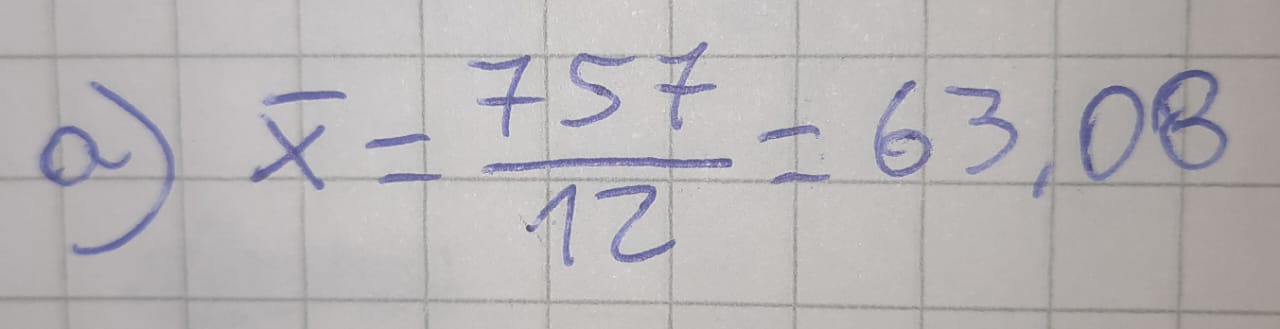 a) x̄ = 757/12 = 63,08